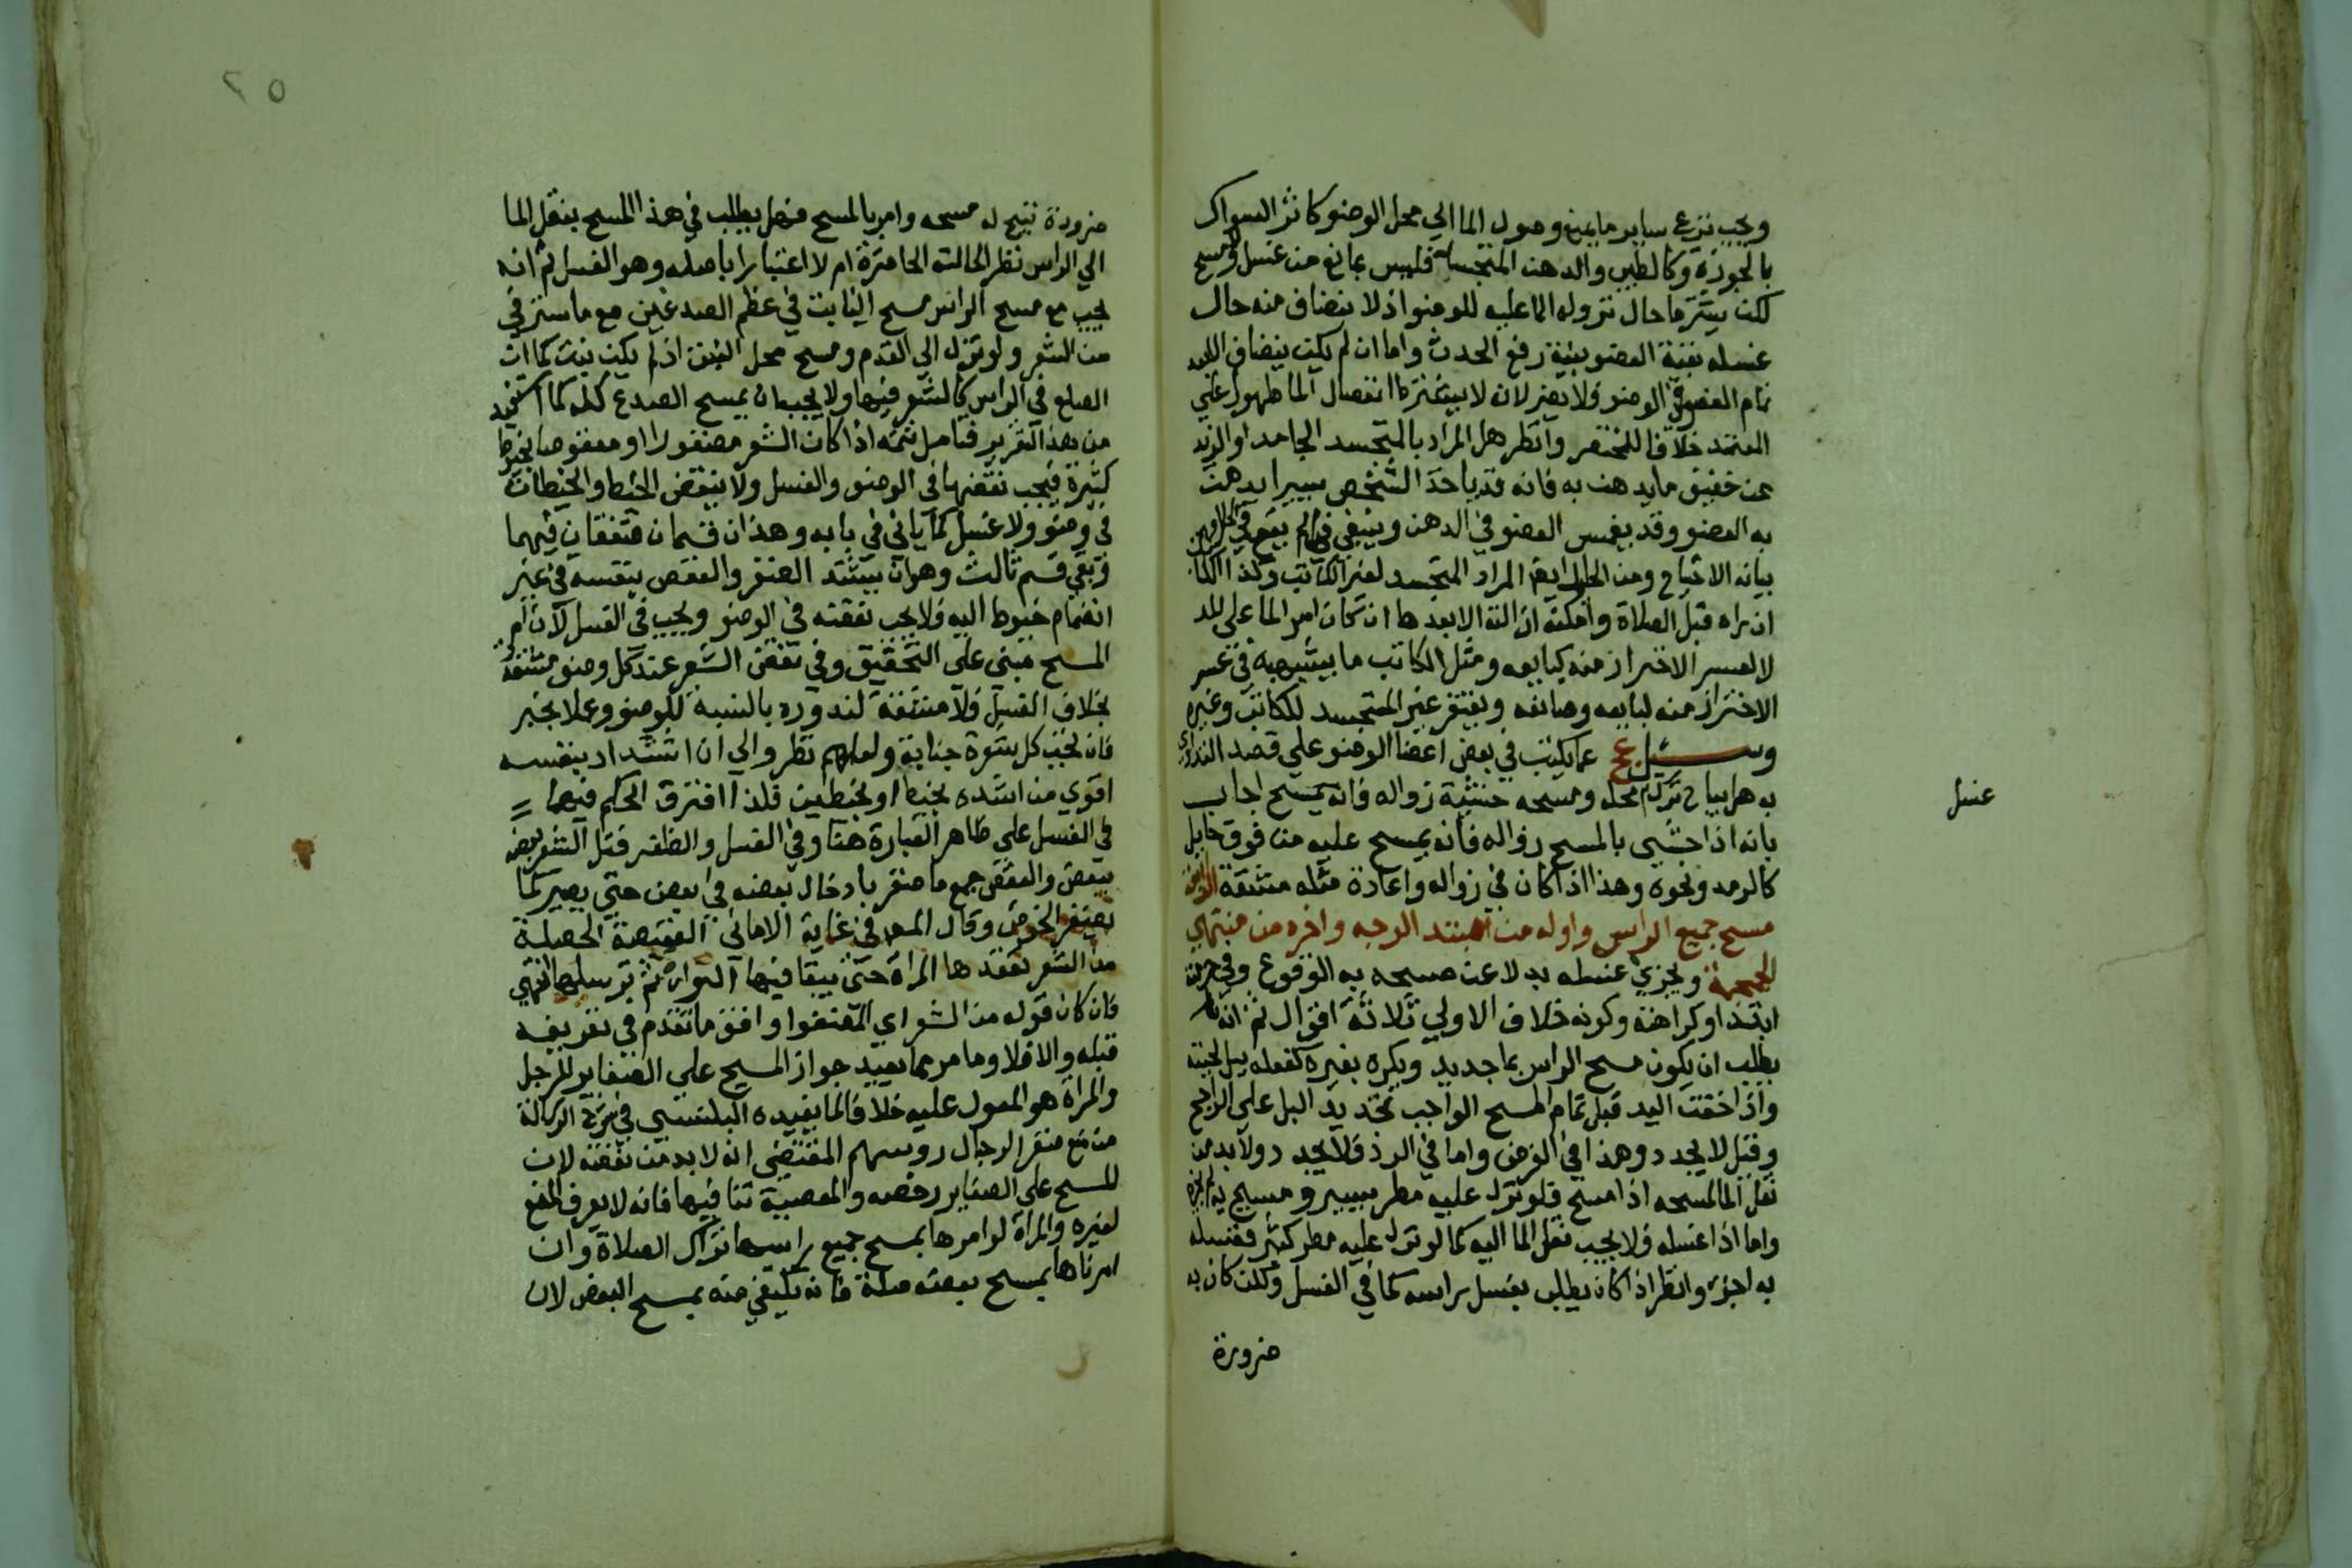 ويجب نزع ساير ما يمنع وصول الما الي محل الوضو كاثر السواك
بالجوزة وكالطين والدهن المتجسد فليس بمانع من غسل ومسح
لكن يشترط حال نزوله الما عليه للوضو اذ لا ينضاف منه حال
غسله بقية العضو بنية رفع الحدث واما ان لم يكن ينضاف الا بعد
تمام العضو في الوضو فلا يضر لان لا يشترط انفصال الما طهورا علي
المعتمد خلافا للمختصر وانظر هل المراد بالمتجسد الجامد او الزيد
عن خفيف ما يدهن به فانه قد ياخذ الشخص يسيرا يدهن
به العضو وقد يغمس العضو في الدهن وينبغي
بيانه الاتباع ومن الحايل ايضا المراد المتجسد لغير الكاتب وكذا الكاتب
ان راه قبل الصلاة وامكنه ازالته لا بعدها ان كان امر الما علي المد
لا لعسر الاحتراز منه كبايعه ومثل الكاتب ما يشبهه في عسر
الاحتراز منه لبايعه وصانعه ويغتفر غير المتجسد للكاتب وغيره
وسئل عج عما يكتب في بعض اعضا الوضو علي قصد التداوي
به هل يباح ترك محله ومسحه خشية زواله فانه يمسح اجاب
بانه اذا خشي بالمسح زواله فانه يمسح عليه من فوق حايل
كالرمد ونحوه وهذا اذا كان في زواله واعادة مثله مشقة
مسح جميع الراس واوله من مبتدا الوجه واخره من منتهي
الجمجمة ويجزي غسله بدلا عن مسحه به الوقوع وفي حرمته
ابتدا او كراهته وكونه خلاف الاولي ثلاثة اقوال ثم انه
يطلب ان يكون مسح الراس بما جديد ويكره بغيره كفعله ببل لحيته
واذا خفت اليد قبل تمام المسح الواجب تجديد البل علي الراجح
وقيل لا يجدد وهذا في الفرض واما في الرد فلا يجدد ولا بد من
نقل الما لمسحه اذا مسح فلو نزل عليه مطر يسير ومسح به لم يجزه
واما اذا غسله فلا يجب نقل الما اليه كما لو نزل عليه مطر كثير فغسله
به اجزا وانظر اذا كان يطلب بغسل راسه كما في الغسل ولكن كان به
ضرورة
غسل
٢٥
ضرورة تبيح له مسحه وامر بالمسح فهل يطلب في هذا المسح بنقل الما
الي الراس نظر الحالته الحاضرة ام لا اعتبارا باصله وهو الغسل ثم انه
يجب مع مسح الراس مسح النابت في عظم الصدغين مع ما استرخي
من الشعر ولو نزل الي القدم ومسح محل النبت اذ لم يكن نبت كما ان
الصلع في الراس كالشعر فيها ولا يجب ان يمسح الصدع كله كما استفيد
من هذا التقرير فتامل تتمه اذا كان الشعر مضفورا او معقوصا بخيوط
كثيرة فيجب نقضها في الوضو والغسل ولا ينقض الخيط والخيطان
في وضو ولا غسل كما ياتي في بابه وهذان قسمان متفقان فيهما
وبقي قسم ثالث وهو ان يشتد الضفر والعقص بنفسه في غير
انضمام خيوط اليه فلا يجب نقضه في الوضو ويجب في الغسل لان امر
المسح مبني علي التخفيف وفي نقض الشعر عند كل وضو مشقة
بخلاف الغسل فلا مشقة لندوره بالنسبة للوضو وعملا بخبر
فان تحت كل شعرة جنابة ولعلهم نظروا الي ان اشتداد بنفسه
اقوي من اشتده بخيط او بخيطين فلذا افترق الحكم فيهما
في الغسل علي ظاهر العبارة هنا وفي الغسل والظفر فتل الشعر بعضه
ببعض والعقص جمع ما ضفر بادخال بعضه في بعض حتي يصير كما
تضفر الخوص وقال المص في غاية الاماني العقيصة الخصلة
من الشعر تعقدها المراة حتي يبقا فيها التوا ثم ترسلها انتهي
فان كان قوله من الشعر اي المضفور وافق ما تقدم في تعريفه
قبله والا فلا وما مر مما يفيد جواز المسح علي الضفاير للرجل
والمراة هو المعول عليه خلافا لما يفيده البلنسي في شرح الرسالة
من منع ضفر الرجال روسهم المقتضي انه لا بد من نقضه لان
المسح علي الضفاير رخصه والمعصية تنافيها فانه لا يعرف المنع
لغيره والمراة لو امرها بمسح جميع راسها تترك الصلاة وان
امرناها بمسح بعضه صلت فانه يكفي منه بمسح البعض لان